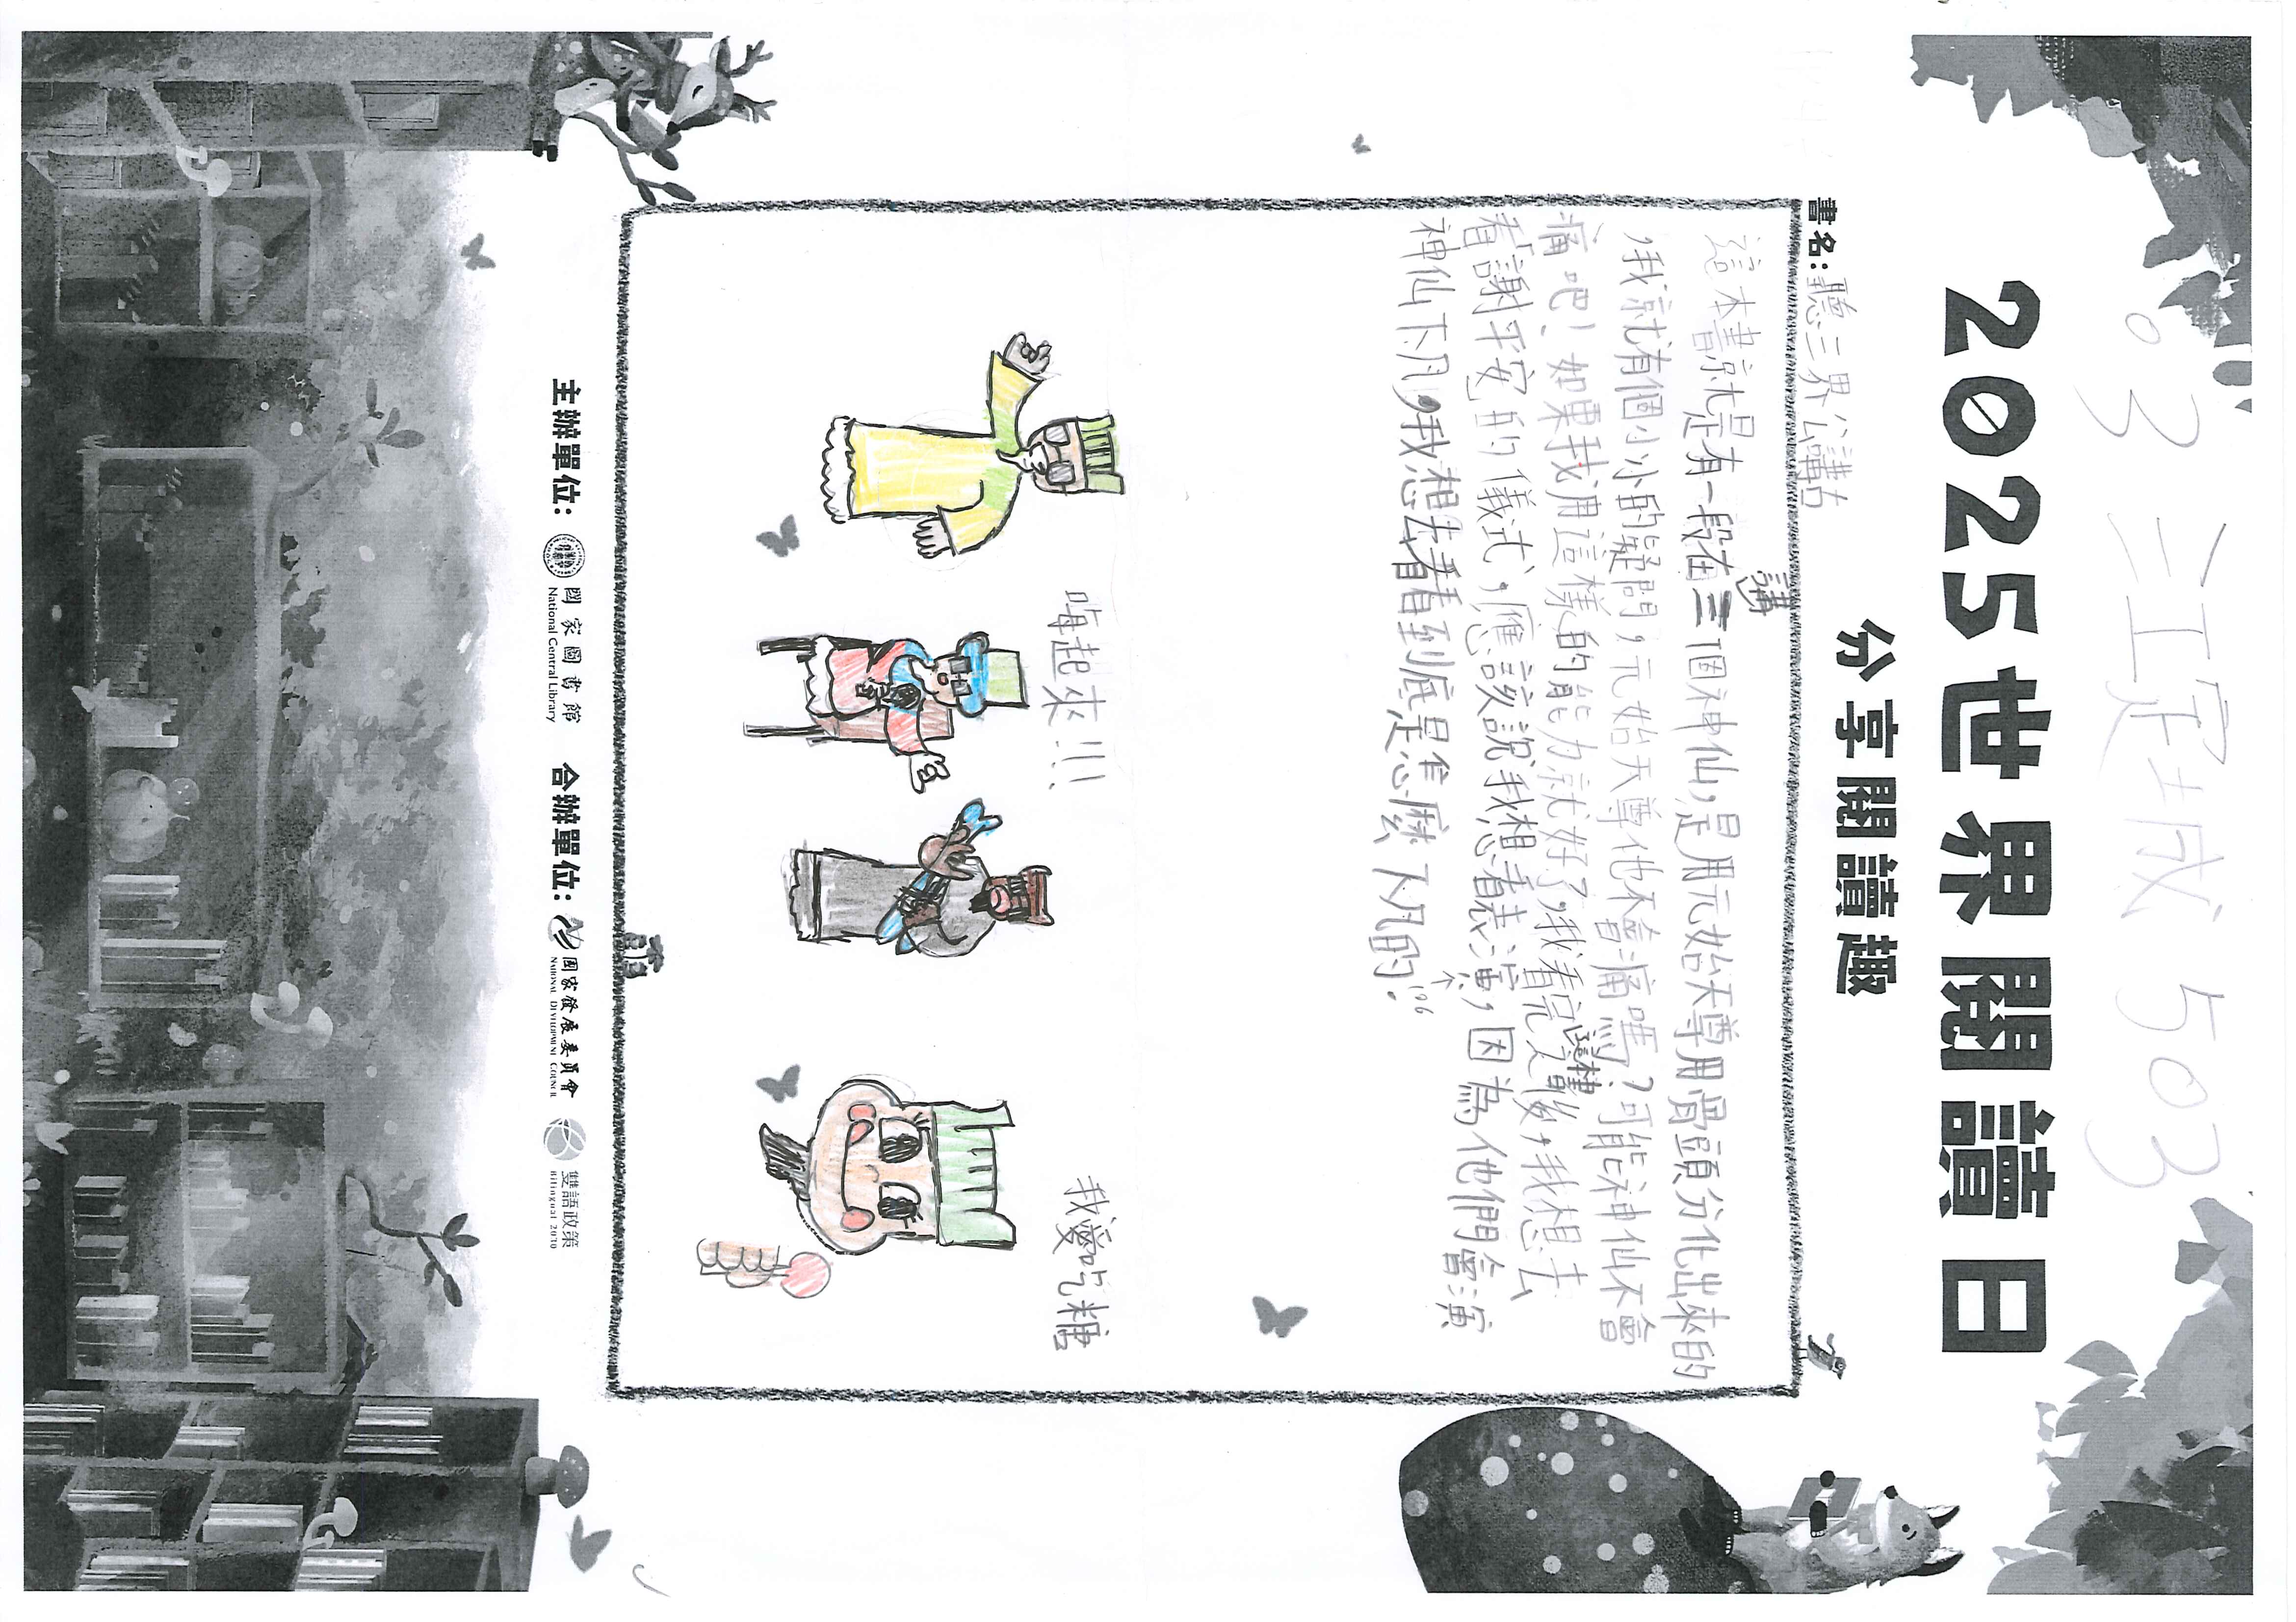 03 江定成 503
2025世界閱讀日
分享閱讀趣
書名:聽三界公講古
講
這本書就是有一段在三個神仙,是用元始天尊用骨頭分化出來的
,我就有個小小的疑問,元始天尊他不會痛嗎?可能神仙不會
痛吧!如果我用這樣的能力就好了,我看完之後,我想去
看「謝平安」的儀式,應該說我想看表演,因為他們會演
神仙下凡,我想去看看到底是怎麼下凡的?
嗨起來!!!
我愛吃糖
主辦單位: 國家圖書館 National Central Library 合辦單位: 國家發展委員會 NATIONAL DEVELOPMENT COUNCIL 雙語政策 Bilingual 2030